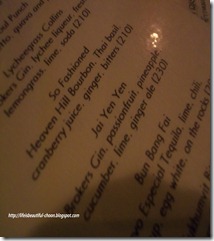 Punch
guava and
Lycheegrass Collins
kers Gin, lychee liqueur, fres
lemongrass, lime, soda (210)
So Fashioned
Heaven Hill Bourbon, Thai basil,
cranberry juice, ginger, bitters (210)
Jai Yen Yen
Brokers Gin, passionfruit, pineapple,
cucumber, lime, ginger ale (230)
Bun Bong Fai
Especial Tequila, lime, chili
egg white, on the rocks (2
http://lifeisbeautiful-choon.blogspot.com